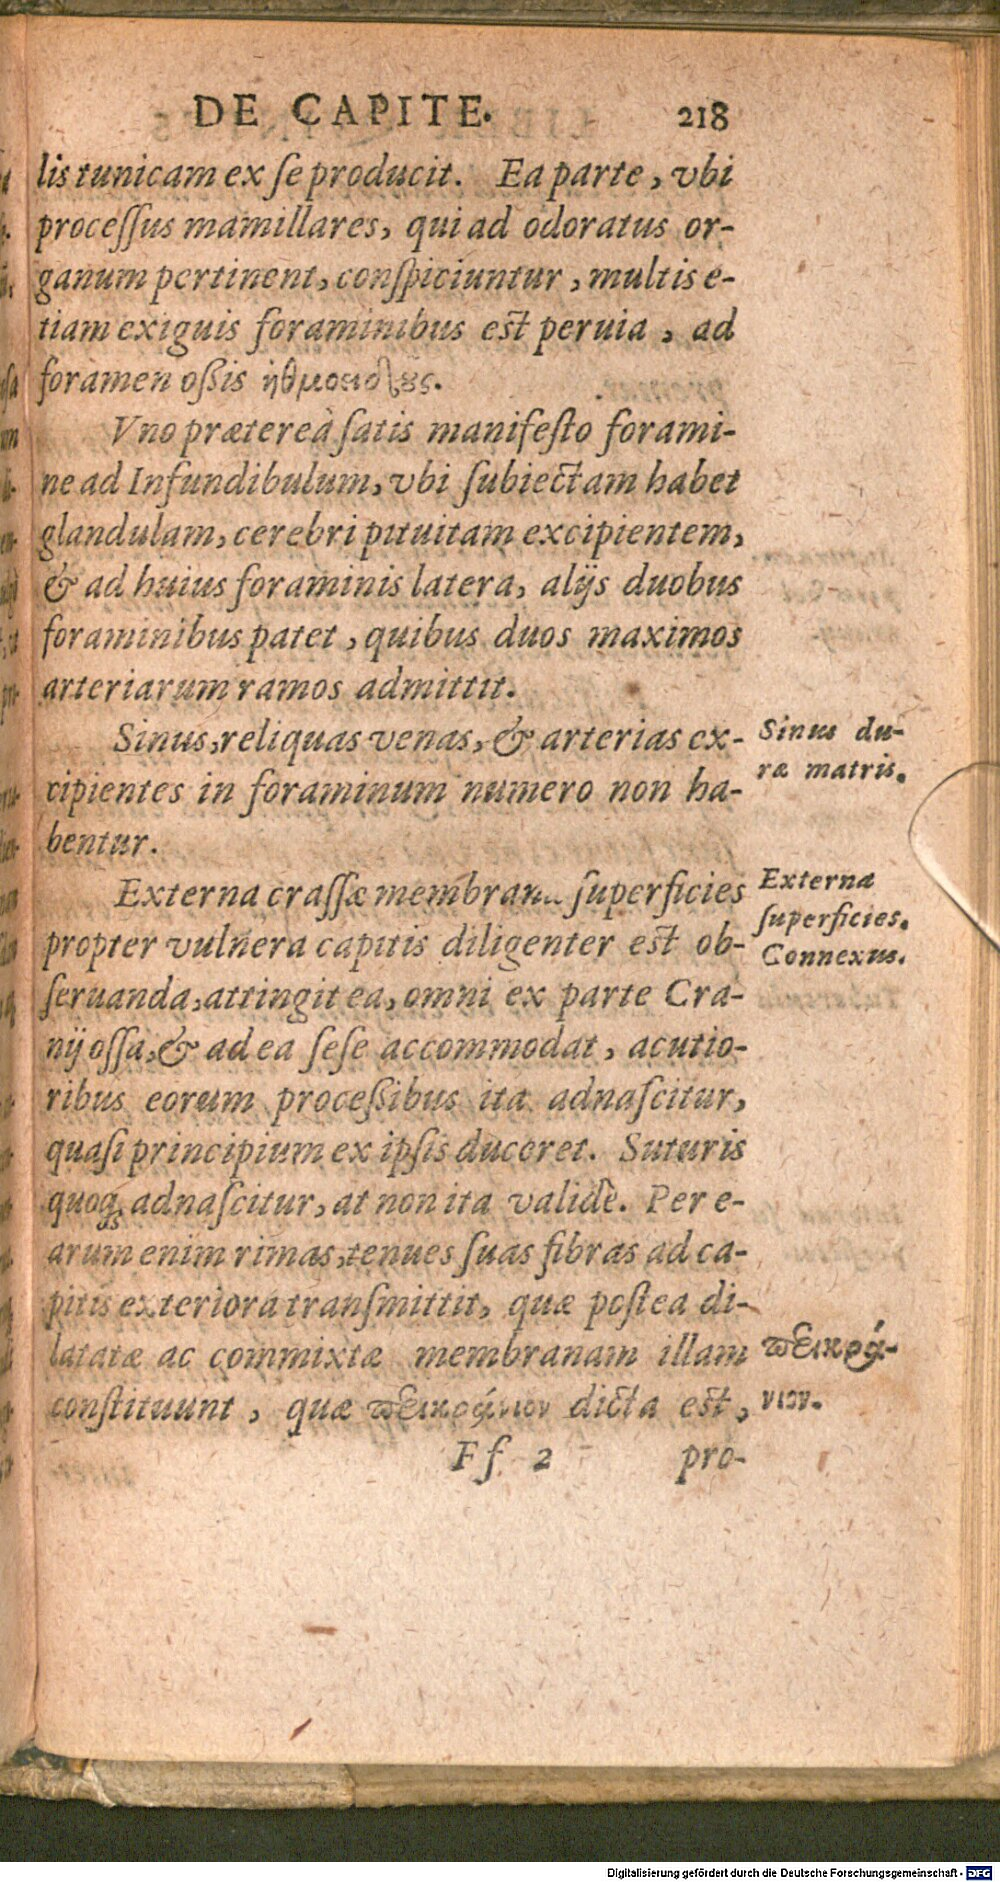 DE CAPITE. 218
lis tunicam ex ſe producit. Ea parte, vbi
proceſſus mamillares, qui ad odoratus or-
ganum pertinent, conſpiciuntur, multis e-
tiam exiguis foraminibus eſt peruia, ad
foramen oßis ἠθμοειδοῦς.
Vno præterea ſatis manifeſto forami-
ne ad Infundibulum, vbi ſubiectam habet
glandulam, cerebri pituitam excipientem,
& ad huius foraminis latera, alijs duobus
foraminibus patet, quibus duos maximos
arteriarum ramos admittit.
Sinus, reliquas venas, & arterias ex-
cipientes in foraminum numero non ha-
bentur.
Sinus du-
ræ matris.
Externa craſſæ membranæ ſuperficies
propter vulnera capitis diligenter eſt ob-
ſeruanda, attingit ea, omni ex parte Cra-
nij oſſa, & ad ea ſeſe accommodat, acutio-
ribus eorum proceßibus ita adnaſcitur,
quaſi principium ex ipſis duceret. Suturis
quoq; adnaſcitur, at non ita validè. Per e-
arum enim rimas, tenues ſuas fibras ad ca-
pitis exteriora tranſmittit, quæ poſtea di-
latatæ ac commixtæ membranam illam
conſtituunt, quæ περικράνιον dicta eſt,
Externa
ſuperficies.
Connexus.
περικρά-
νιον.
Ff 2 pro-
Digitalisierung gefördert durch die Deutsche Forschungsgemeinschaft - DFG